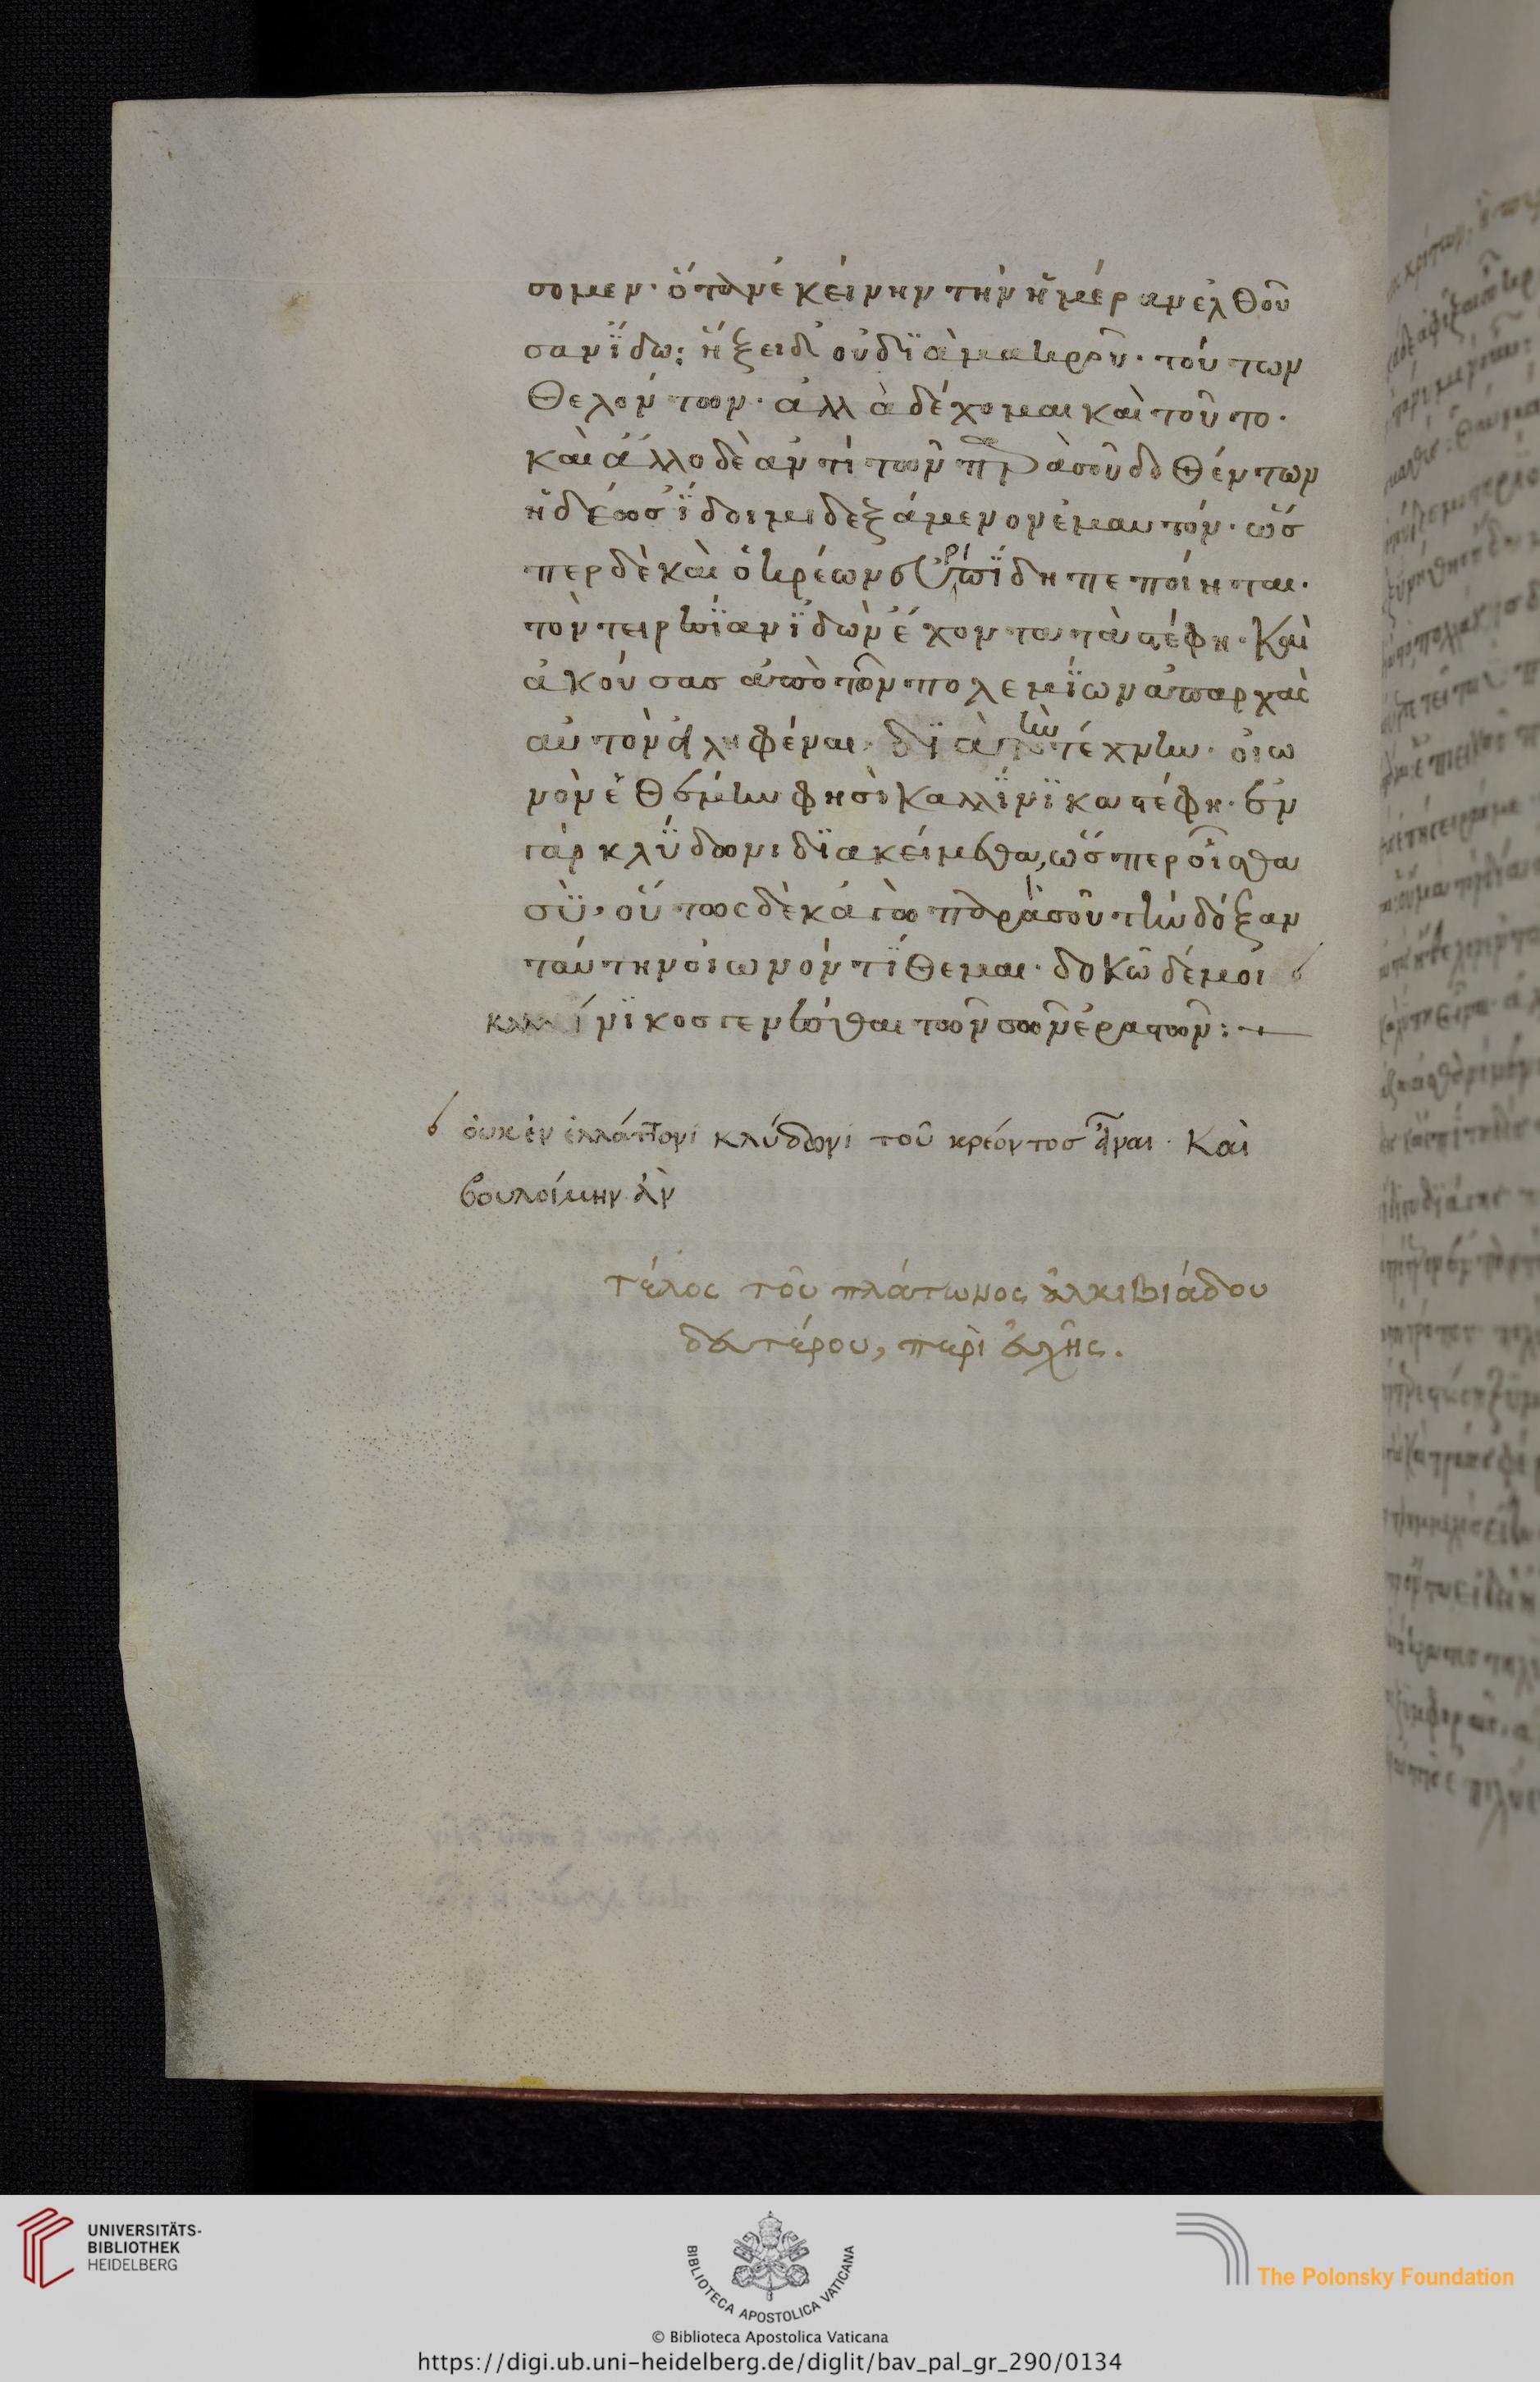 σομεν· ὅταν ἐκείνην τὴν ἡμέραν ἐλθοῦ
σαν ἴδω: ἥξει δ' οὐ δϊὰ μακροῦ· τούτων
θελόντων· ἀλλὰ δέχομαι καὶ τοῦτο·
καὶ ἄλλο δὲ ἀντὶ τῶν παρὰ σοῦ δοθέντων
ἡδέως ἴδοιμι δεξάμενον ἐμαυτόν· ὥσ
περ δὲ καὶ ὁ κρέων εὐριπΐδη πεποίηται·
τὸν τειρεσΐαν ἰδὼν ἔχοντα τὰ στέφη· καὶ
ἀκούσας ἀπὸ τῶν πολεμΐων ἀπαρχὰς
αὐτὸν εἰληφέναι· δϊὰ τὴν τέχνην· οἰω
νὸν ἐθέμην φησὶ καλλΐνϊκα στέφη· ἐν
γὰρ κλΰδωνι δϊακείμεθα, ὥσπερ οἶσθα
σΰ, οὕτως δὲ κἀγὼ παρὰ σοῦ τὴν δόξαν
ταύτην οἰωνὸν τΐθεμαι· δοκῶ δέ μοι
καλλίνϊκος γενέσθαι τῶν σῶν ἐραστῶν:
οὐκ ἐν ἐλλάττονι κλύδωνι τοῦ κρέοντος εἶναι· καὶ
βουλοίμην ἂν
τέλος τοῦ πλάτωνος ἀλκιβιάδου
δευτέρου, περὶ εὐχῆς.
UNIVERSITÄTS-
BIBLIOTHEK
HEIDELBERG
BIBLIOTECA APOSTOLICA VATICANA
The Polonsky Foundation
© Biblioteca Apostolica Vaticana
https://digi.ub.uni-heidelberg.de/diglit/bav_pal_gr_290/0134